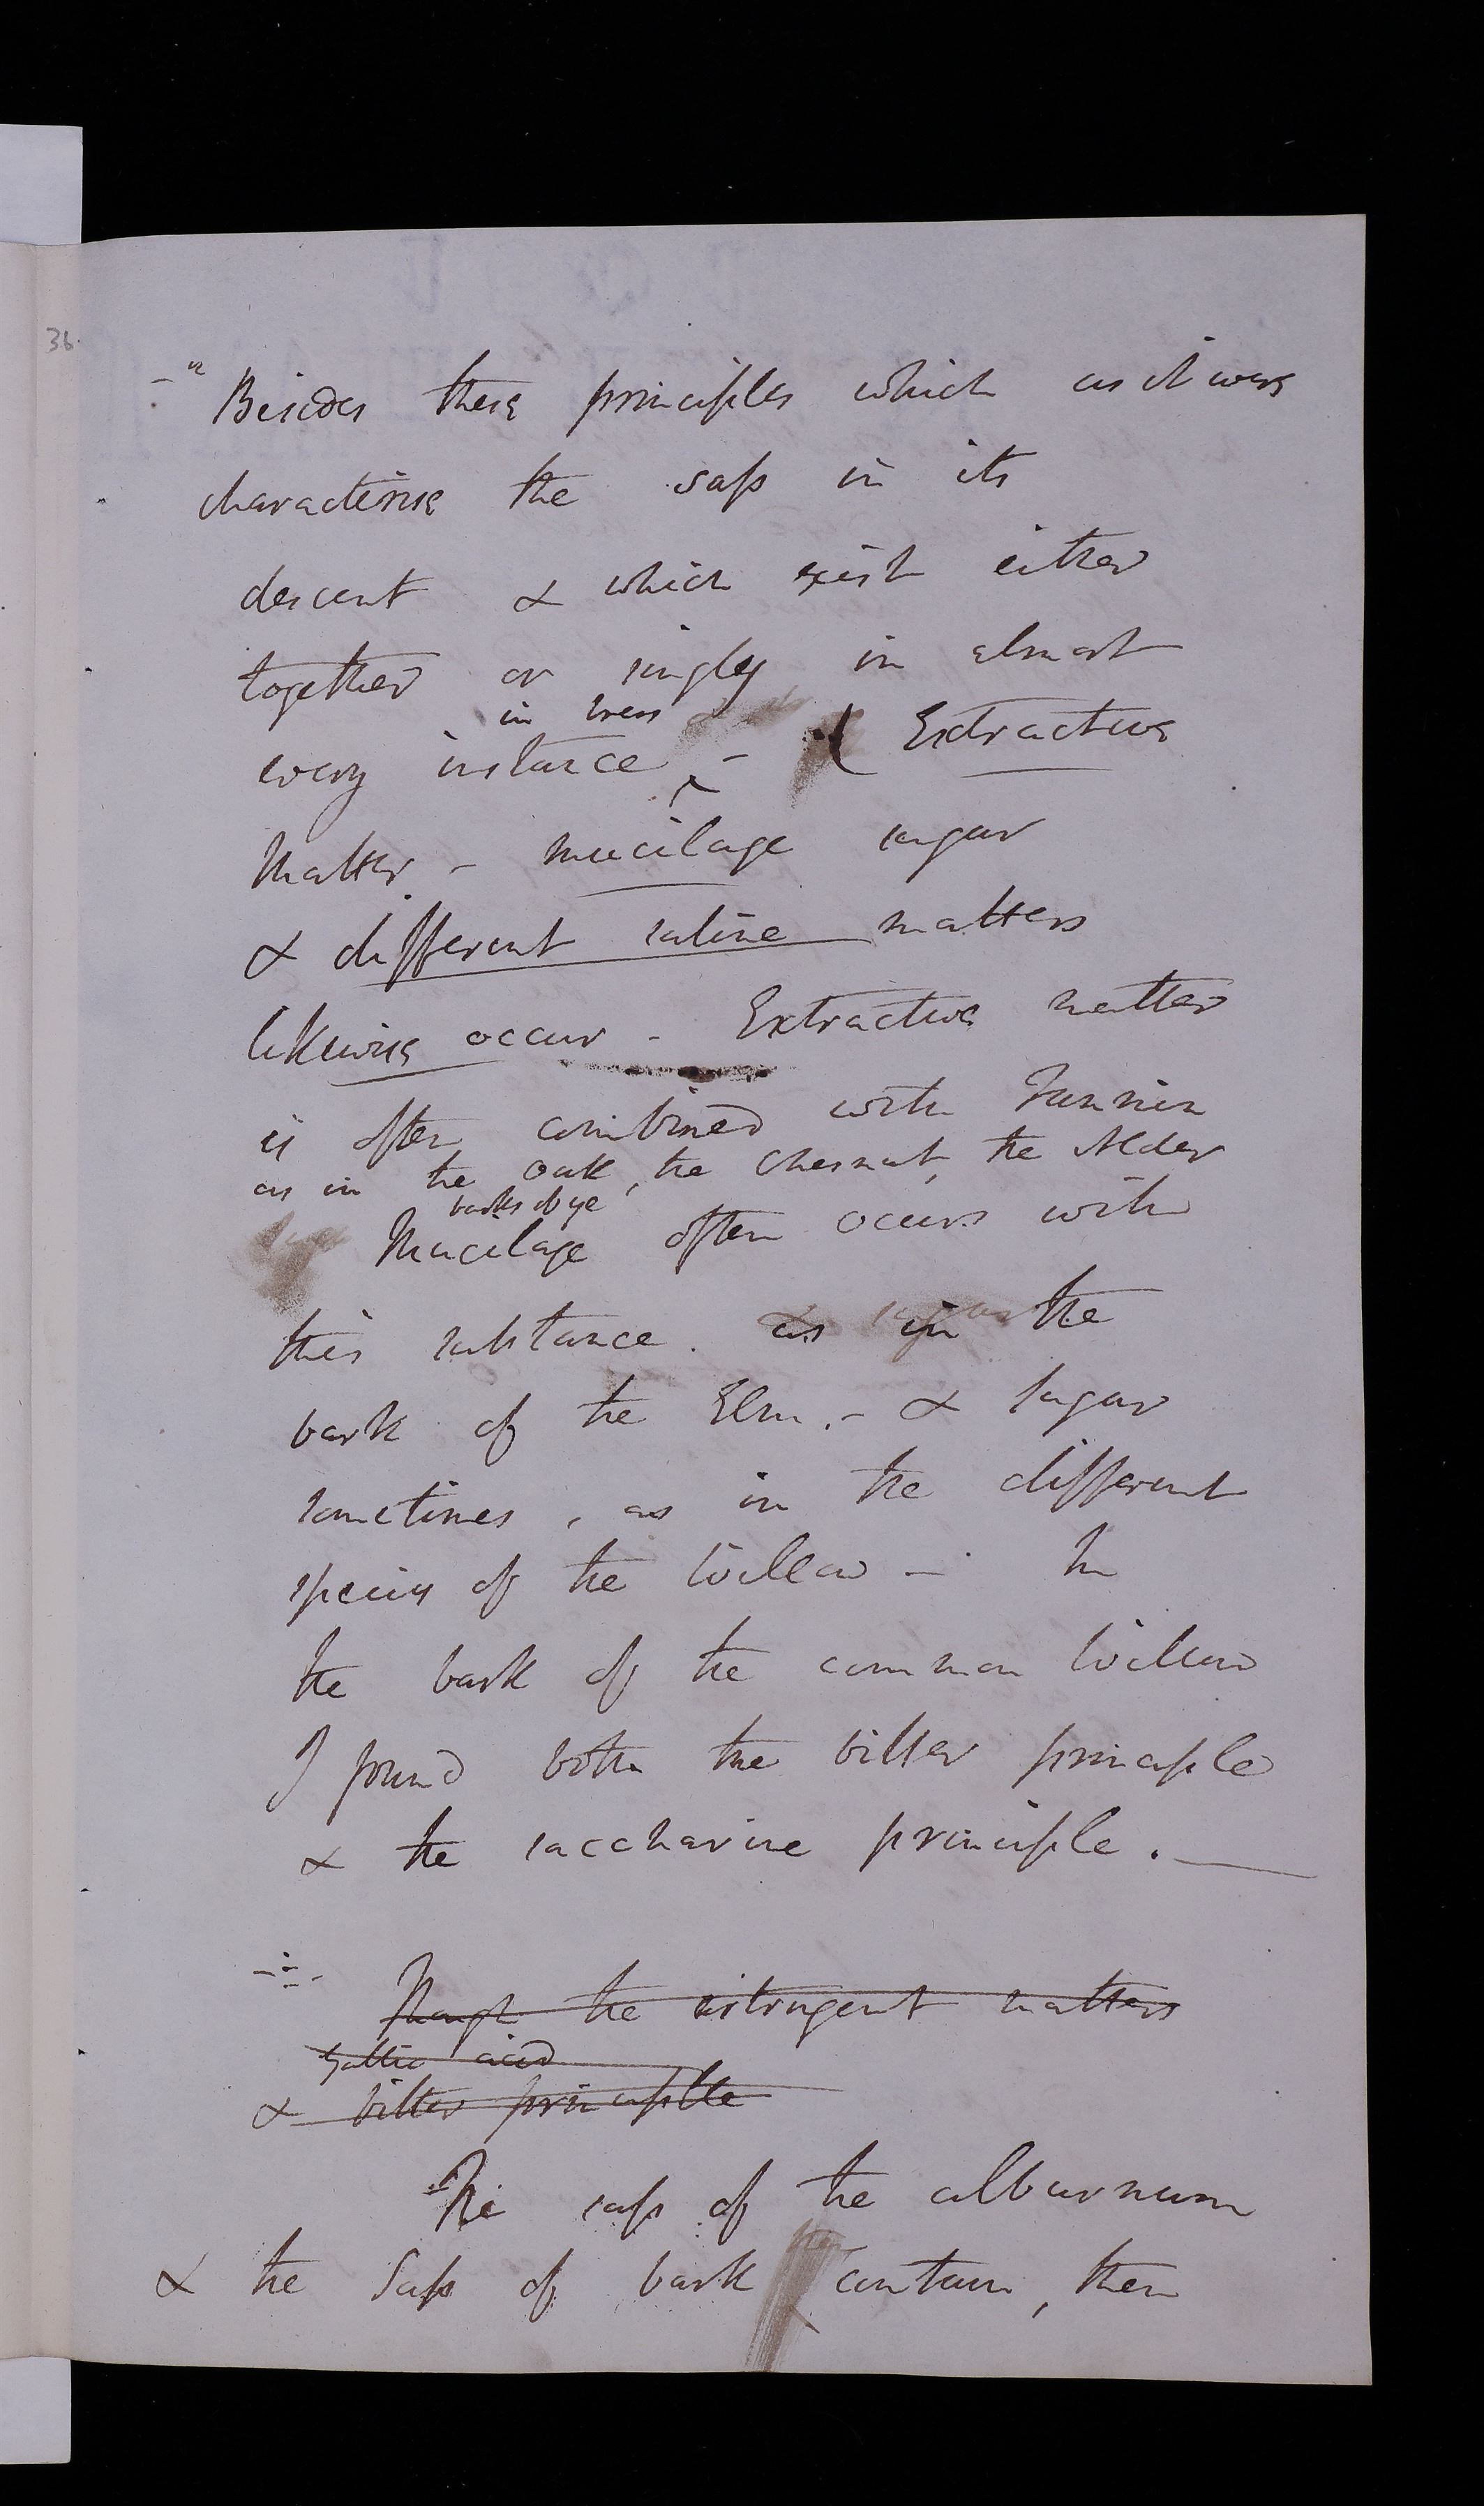 36.
- " Besides these principles which as it were
characterise the sap in its
descent & which exist either
together or singly in almost
in trees
every instance - ( Extractive
Matter - mucilage sugar
& different saline matters
likewise occur - Extractive matter
is often combined with Tannin
as in the Oak, the Chesnut, the Alder
barks of ye
Mucilage often occurs with
this substance. as in the
bark of the Elm. - & sugar
sometimes, as in the different
species of the Willow - In
the bark of the common Willow
I found both the bitter principle
& the saccharine principle.
Though the astringent matters
Gallic acid
& bitter principle
The sap of the alburnum
& the Sap of bark contain, then